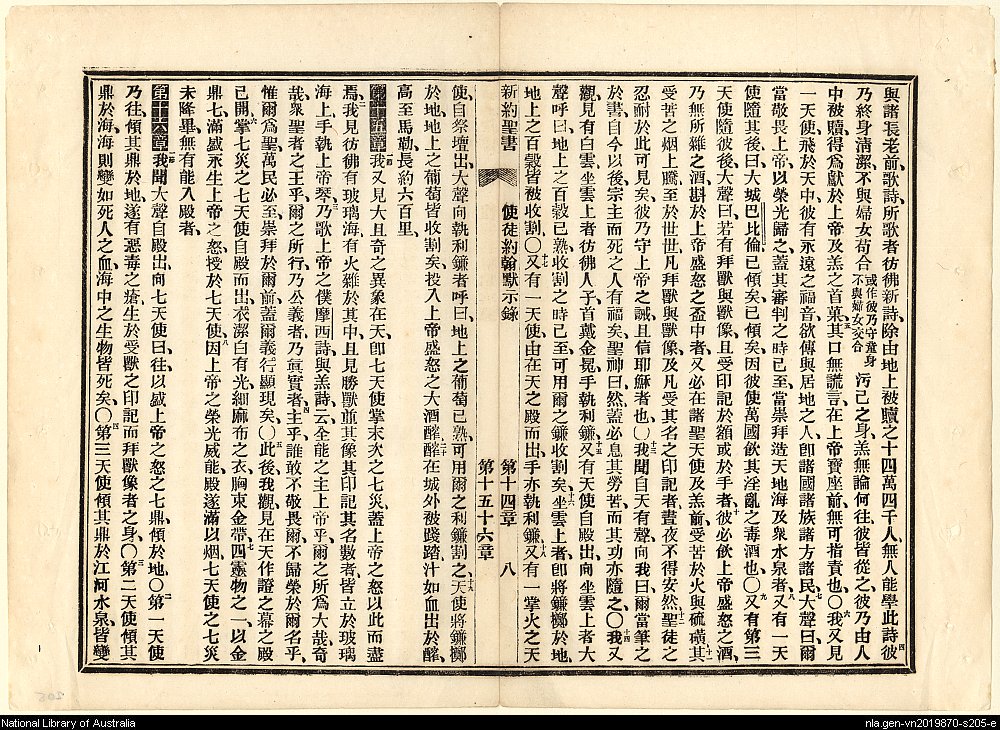 與諸長老前、歌詩、所歌者彷佛新詩、除由地上被贖之十四萬四千人、無人能學此詩、四彼
乃終身清潔、不與婦女苟合或作彼乃守童身不與婦女交合汚己之身、羔無論何往、彼皆從之、彼乃由人
中被贖、得爲獻於上帝及羔之首菓、五其口無謊言、在上帝寶座前、無可指責也、〇六我又見
一天使飛於天中、彼有永遠之福音、欲傳與居地之人、卽諸國諸族諸方諸民、七大聲曰、爾
當敬畏上帝、以榮光歸之、蓋其審判之時已至、當崇拜造天地海及衆水泉者、八又有一天
使隨其後曰、大城巴比倫已傾矣、已傾矣、因彼使萬國飲其淫亂之毒酒也、〇九又有第三
天使隨彼後、大聲曰、若有拜獸與獸像、且受印記於額或於手者、十彼必飲上帝盛怒之酒、
乃無所雜之酒、斟於上帝盛怒之盃中者、又必在諸聖天使及羔前、受苦於火與硫磺、十一其
受苦之烟上騰、至於世世、凡拜獸與獸像、及凡受其名之印記者、晝夜不得安然、十二聖徒之
忍耐於此可見矣、彼乃守上帝之誡、且信耶穌者也、〇十三我聞自天有聲向我曰、爾當筆之
於書、自今以後、宗主而死之人有福矣、聖神曰、然、蓋必息其勞苦、而其功亦隨之、〇十四我又
觀、見有白雲、坐雲上者彷佛人子、首戴金冕、手執利鐮、十五又有天使自殿出、向坐雲上者大
聲呼曰、地上之百穀已熟、收割之時已至、可用爾之鐮收割矣、十六坐雲上者、卽將鐮擲於地、
地上之百穀皆被收割、〇十七又有一天使由在天之殿而出、手亦執利鐮、十八又有一掌火之天
新約聖書 使徒約翰默示錄 第十四章 八
第十五十六章
使、自祭壇出、大聲向執利鐮者呼曰、地上之葡萄已熟、可用爾之利鐮割之、十九天使將鐮擲
於地、地上之葡萄皆收割矣、投入上帝盛怒之大酒醡、二十醡在城外被踐踏、汁如血出於醡、
高至馬勒、長約六百里、
第十五章一節我又見大且奇之異象在天、卽七天使掌末次之七災、蓋上帝之怒以此而盡
焉、二我見彷佛有玻璃海、有火雜於其中、且見勝獸並其像其印記其名數者、皆立於玻璃
海上、手執上帝琴、三乃歌上帝之僕摩西詩與羔詩云、全能之主上帝乎、爾之所爲大哉奇
哉、衆聖者之王乎、爾之所行、乃公義者、乃眞實者、四主乎、誰敢不敬畏爾、不歸榮於爾名乎、
惟爾爲聖、萬民必至崇拜於爾前、蓋爾義行顯現矣、〇五此後我觀、見在天作證之幕之殿
已開、六掌七災之七天使自殿而出、衣潔白有光細麻布之衣、胸束金帶、七四靈物之一、以金
鼎七、滿盛永生上帝之怒、授於七天使、八因上帝之榮光威能、殿遂滿以烟、七天使之七災
未降畢、無有能入殿者、
第十六章一節我聞大聲自殿出、向七天使曰、往以盛上帝之怒之七鼎、傾於地、〇二第一天使
乃往、傾其鼎於地、遂有惡毒之瘡、生於受獸之印記而拜獸像者之身、〇三第二天使傾其
鼎於海、海則變如死人之血、海中之生物皆死矣、〇四第三天使傾其鼎於江河水泉、皆變
National Library of Australia
nla.gen-vn2019870-s205-e